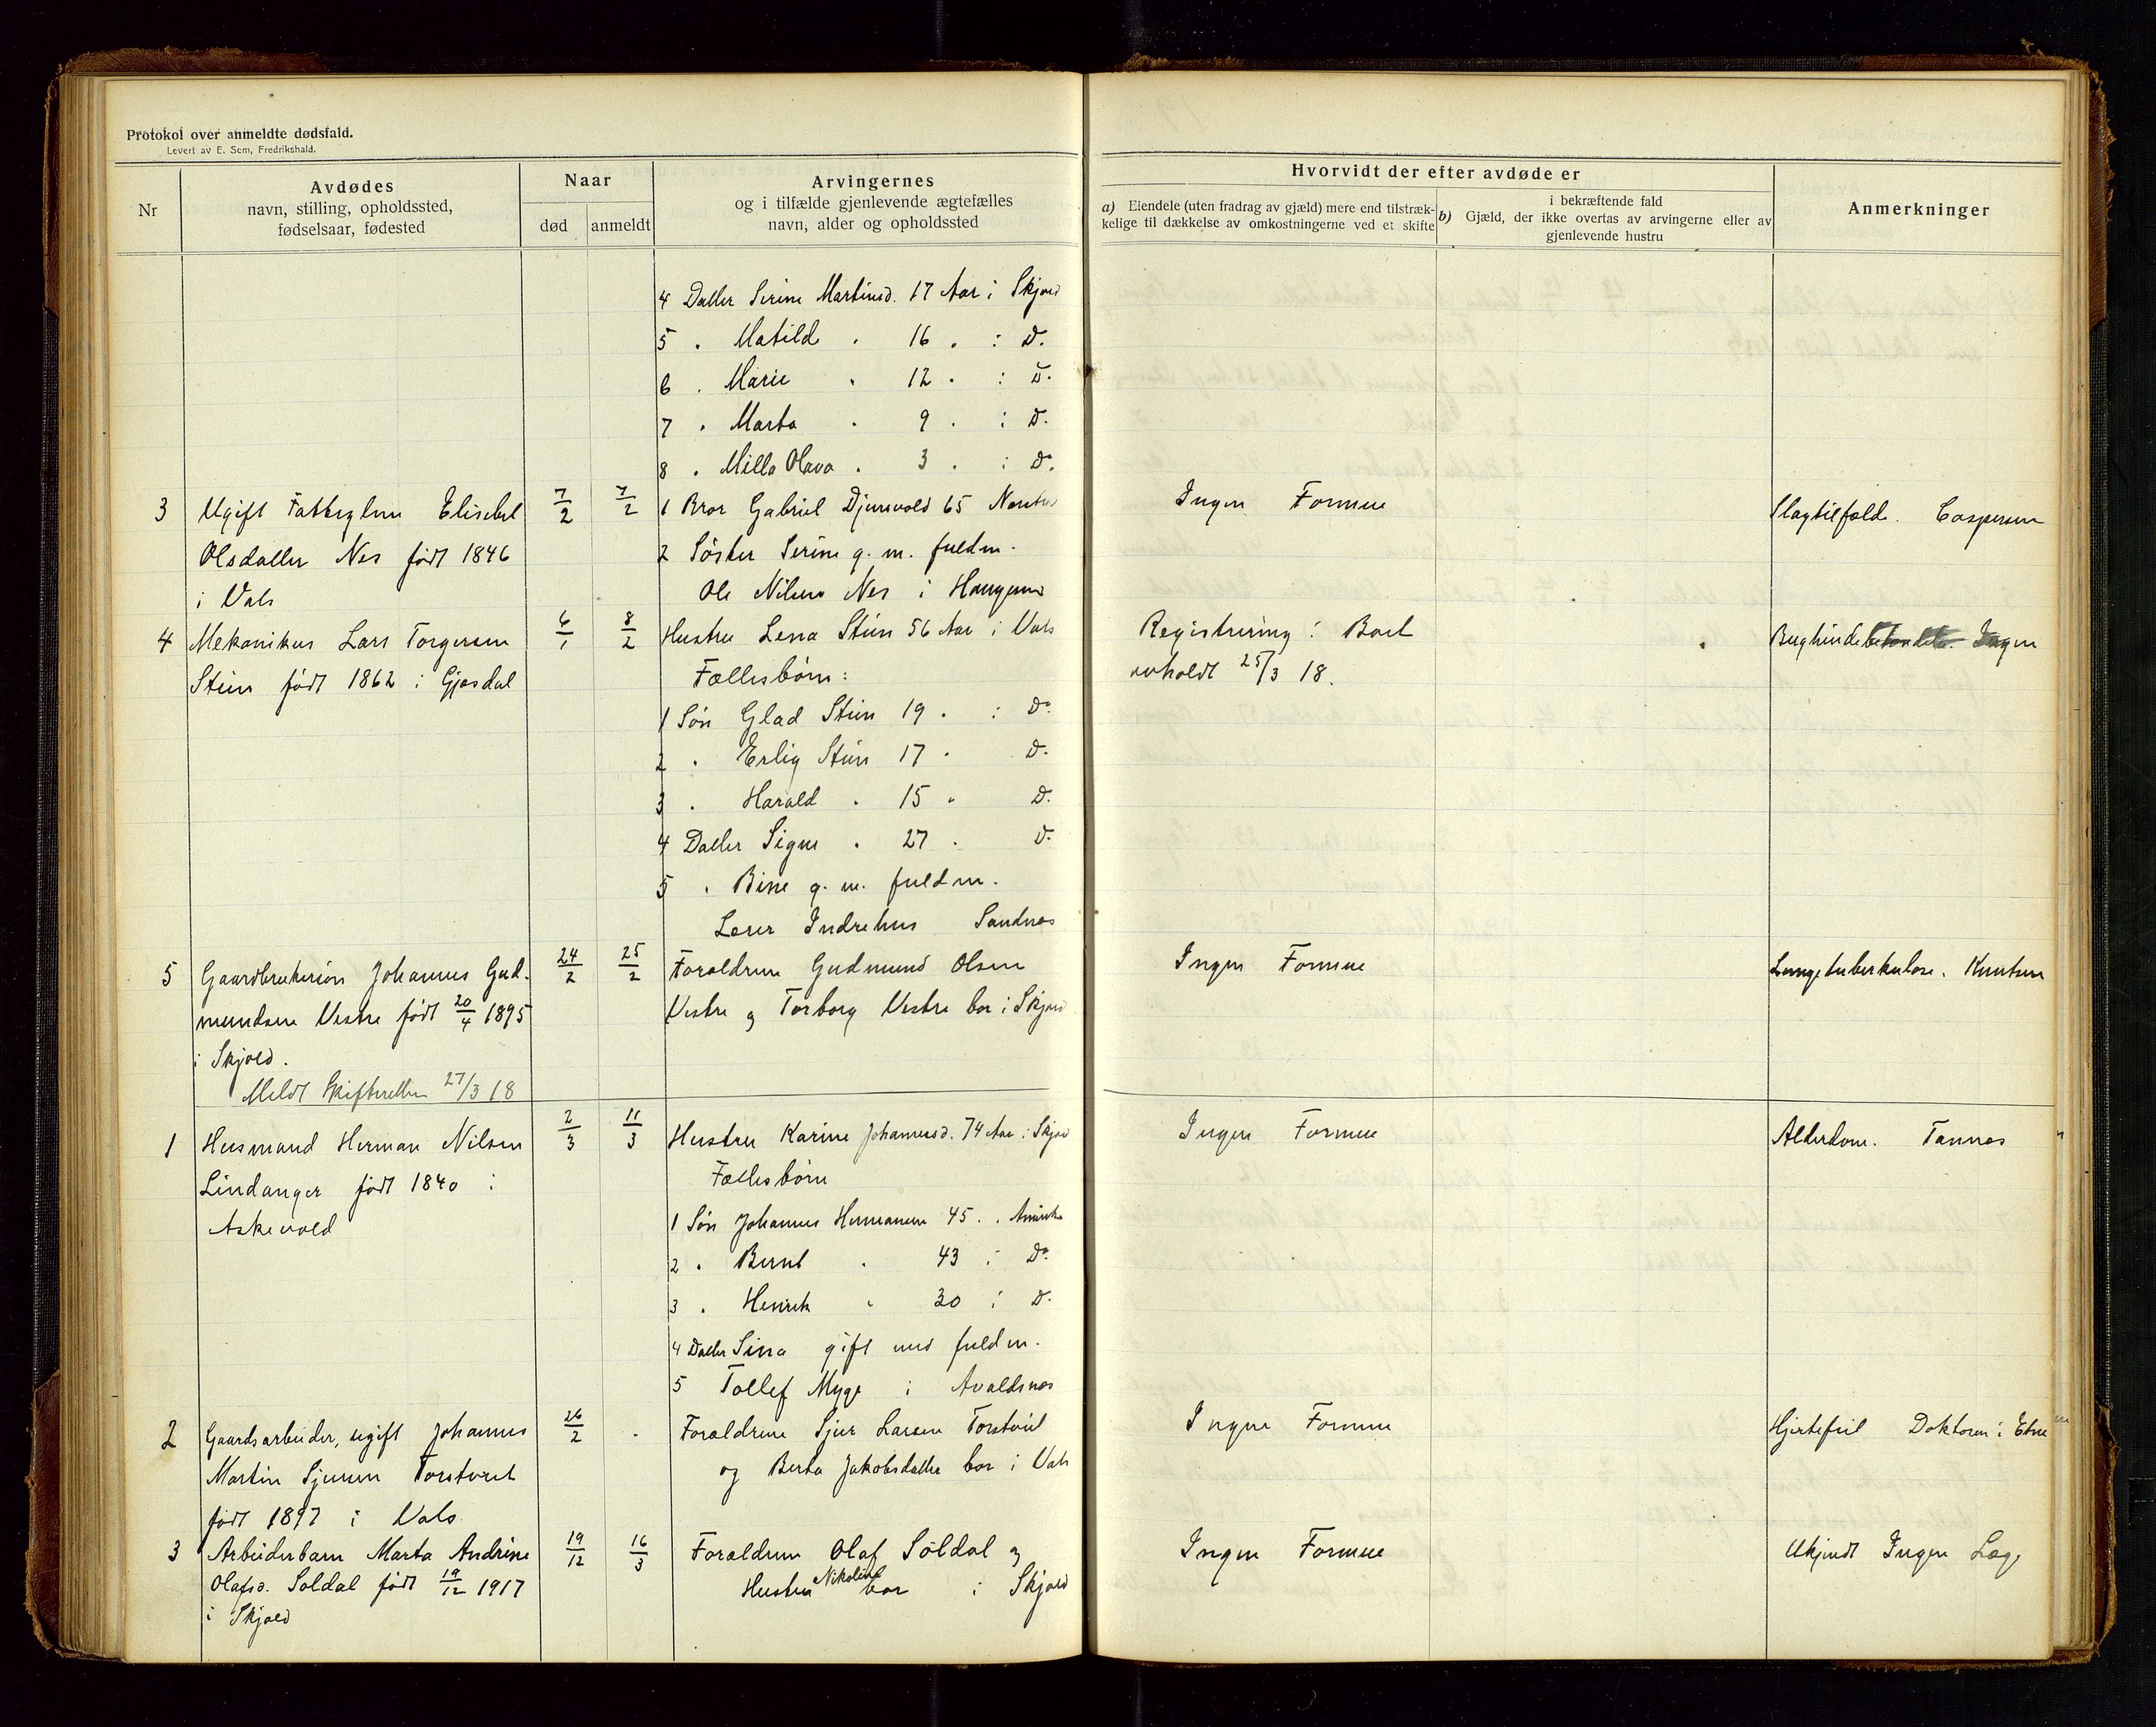 Protokol over anmeldte dødsfald.
Levert av E. Sem, Fredrikshald.
Nr
Avdødes
navn, stilling, opholdssted,
fødselsaar, fødested
Naar
død
anmeldt
Arvingernes
og i tilfælde gjenlevende ægtefælles
navn, alder og opholdssted
Hvorvidt der efter avdøde er
a) Eiendele (uten fradrag av gjæld) mere end tilstræk-
kelige til dækkelse av omkostningerne ved et skifte
i bekræftende fald
b) Gjæld, der ikke overtas av arvingerne eller av
gjenlevende hustru
Anmerkninger
4 Datter Serine Martinsd. 17 Aar i Skjold
5 . Matild . 16 . : Do.
6 . Marie . 12 . : Do.
7 . Marta . 9 . : Do.
8 . Milla Olava . 3 . : Do.
3 Ugift Fattiglem Elisebet
Olsdatter Nes født 1846
i Vats
7/2 7/2
1 Bror Gabriel Djursvold 65
2 Søster Serine g. m. fuldm.
Ole Nilsen Nes i Haugesund
Ingen Formue
Slagtilfælde. Caspersen
4 Mekanikus Lars Torgersen
Stein født 1862 i Gjæsdal
6/1 8/2
Hustru Lena Stein 56 Aar i Vats
Fællesbørn:
1 Søn Glad Stein 19 . : Do.
2 . Erlig Stein 17 . Do.
3 . Harald . 15 . Do.
4 Datter Signe . 27 . Do.
5 . Bine g. m. fuldm.
Lærer Indrehus Sandnes
Registrering i Boet
avholdt 25/3 18.
Bughindebetændelse. Ingen
5 Gaardbrukersøn Johannes Gud-
mundsen Vestre født 20/4 1895
i Skjold.
Meldt Skifteretten 27/3 18
24/2 25/2
Forældrene Gudmund Olsen
Vestre og Torborg Vestre bor i Skjold
Ingen Formue
Lungetuberkulose. Knutsen
1 Husmand Herman Nilsen
Lindanger født 1840 i
Askevold
2/3 11/3
Hustru Karine Johannesd. 74 Aar i Skjold
Fællesbørn
1 Søn Johannes Hermansen 45 . . Amerika
2 . Bernt . 43 i Do.
3 . Henrik . 30 i Do.
4 Datter Sina gift med fuldm.
5 Tollef Myge i Avaldsnes
Ingen Formue
Alderdom. Tannæs
2 Gaardsarbeider, ugift Johannes
Martin Sjursen Torstveit
født 1897 i Vats
26/2 .
Forældrene Sjur Larsen Torstveit
og Berta Jakobsdatter bor i Vats
Ingen Formue
Hjertefeil Doktoren i Etne
3 Arbeiderbarn Marta Andrine
Olafsd. Søldal født 19/12 1917
i Skjold
19/12 16/3
Forældrene Olaf Søldal og
Hustru Nikoline bor i Skjold
Ingen Formue
Ukjendt Ingen Læge